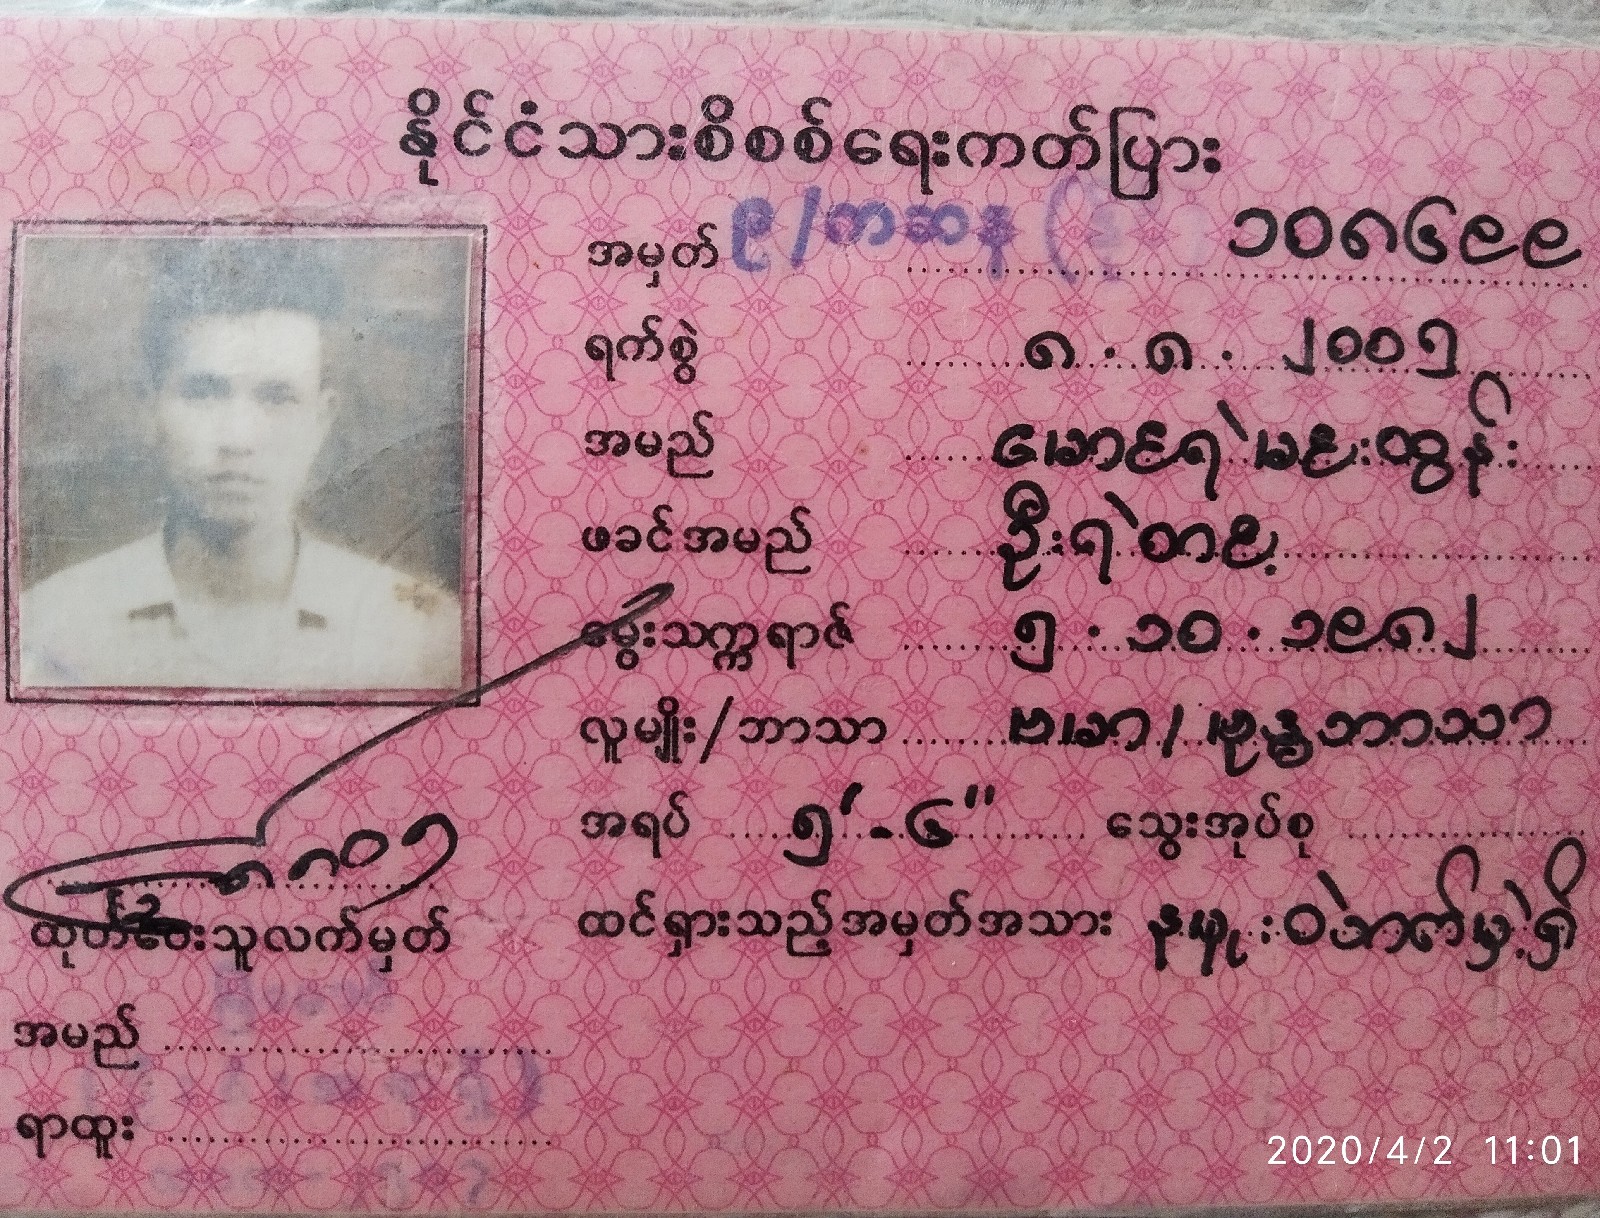 နိုင်ငံသားစိစစ်ရေးကတ်ပြား
အမှတ် ၉/ကဆန ( ၁၀၈၆၉၉
ရက်စွဲ ၈.၈.၂၀၀၅
အမည် မောင်ရဲမင်းထွန်း
ဖခင်အမည် ဦးရဲတင့်
မွေးသက္ကရာဇ် ၅.၁၀.၁၉၈၂
လူမျိုး/ဘာသာ ဗမာ/ဗုဒ္ဓဘာသာ
အရပ် ၅'-၆" သွေးအုပ်စု
ထင်ရှားသည့်အမှတ်အသား နဖူးဝဲဘက်မှဲ့ရှိ
ထုတ်ပေးသူလက်မှတ်
အမည်
ရာထူး
2020/4/2 11:01